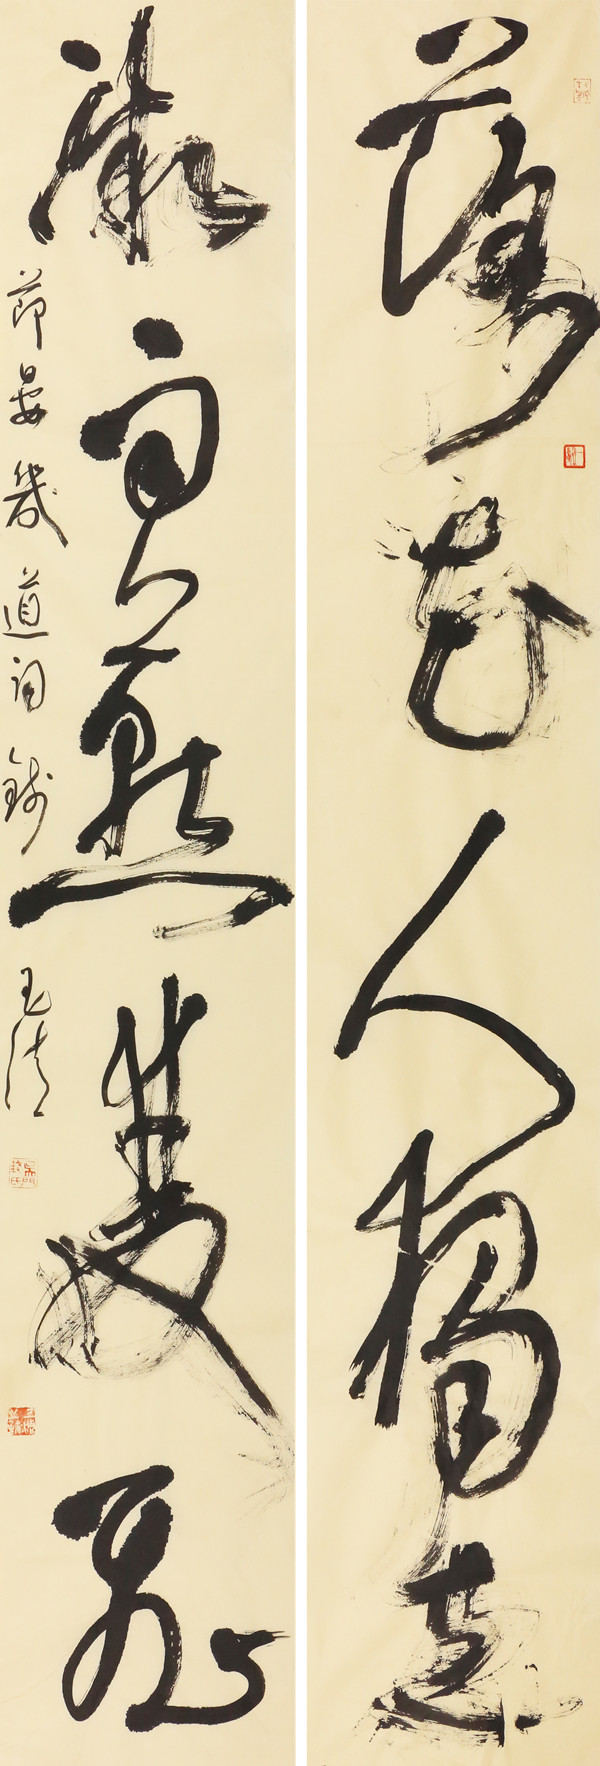 落花人獨立
微雨燕雙飛
節晏幾道詞錢玉清